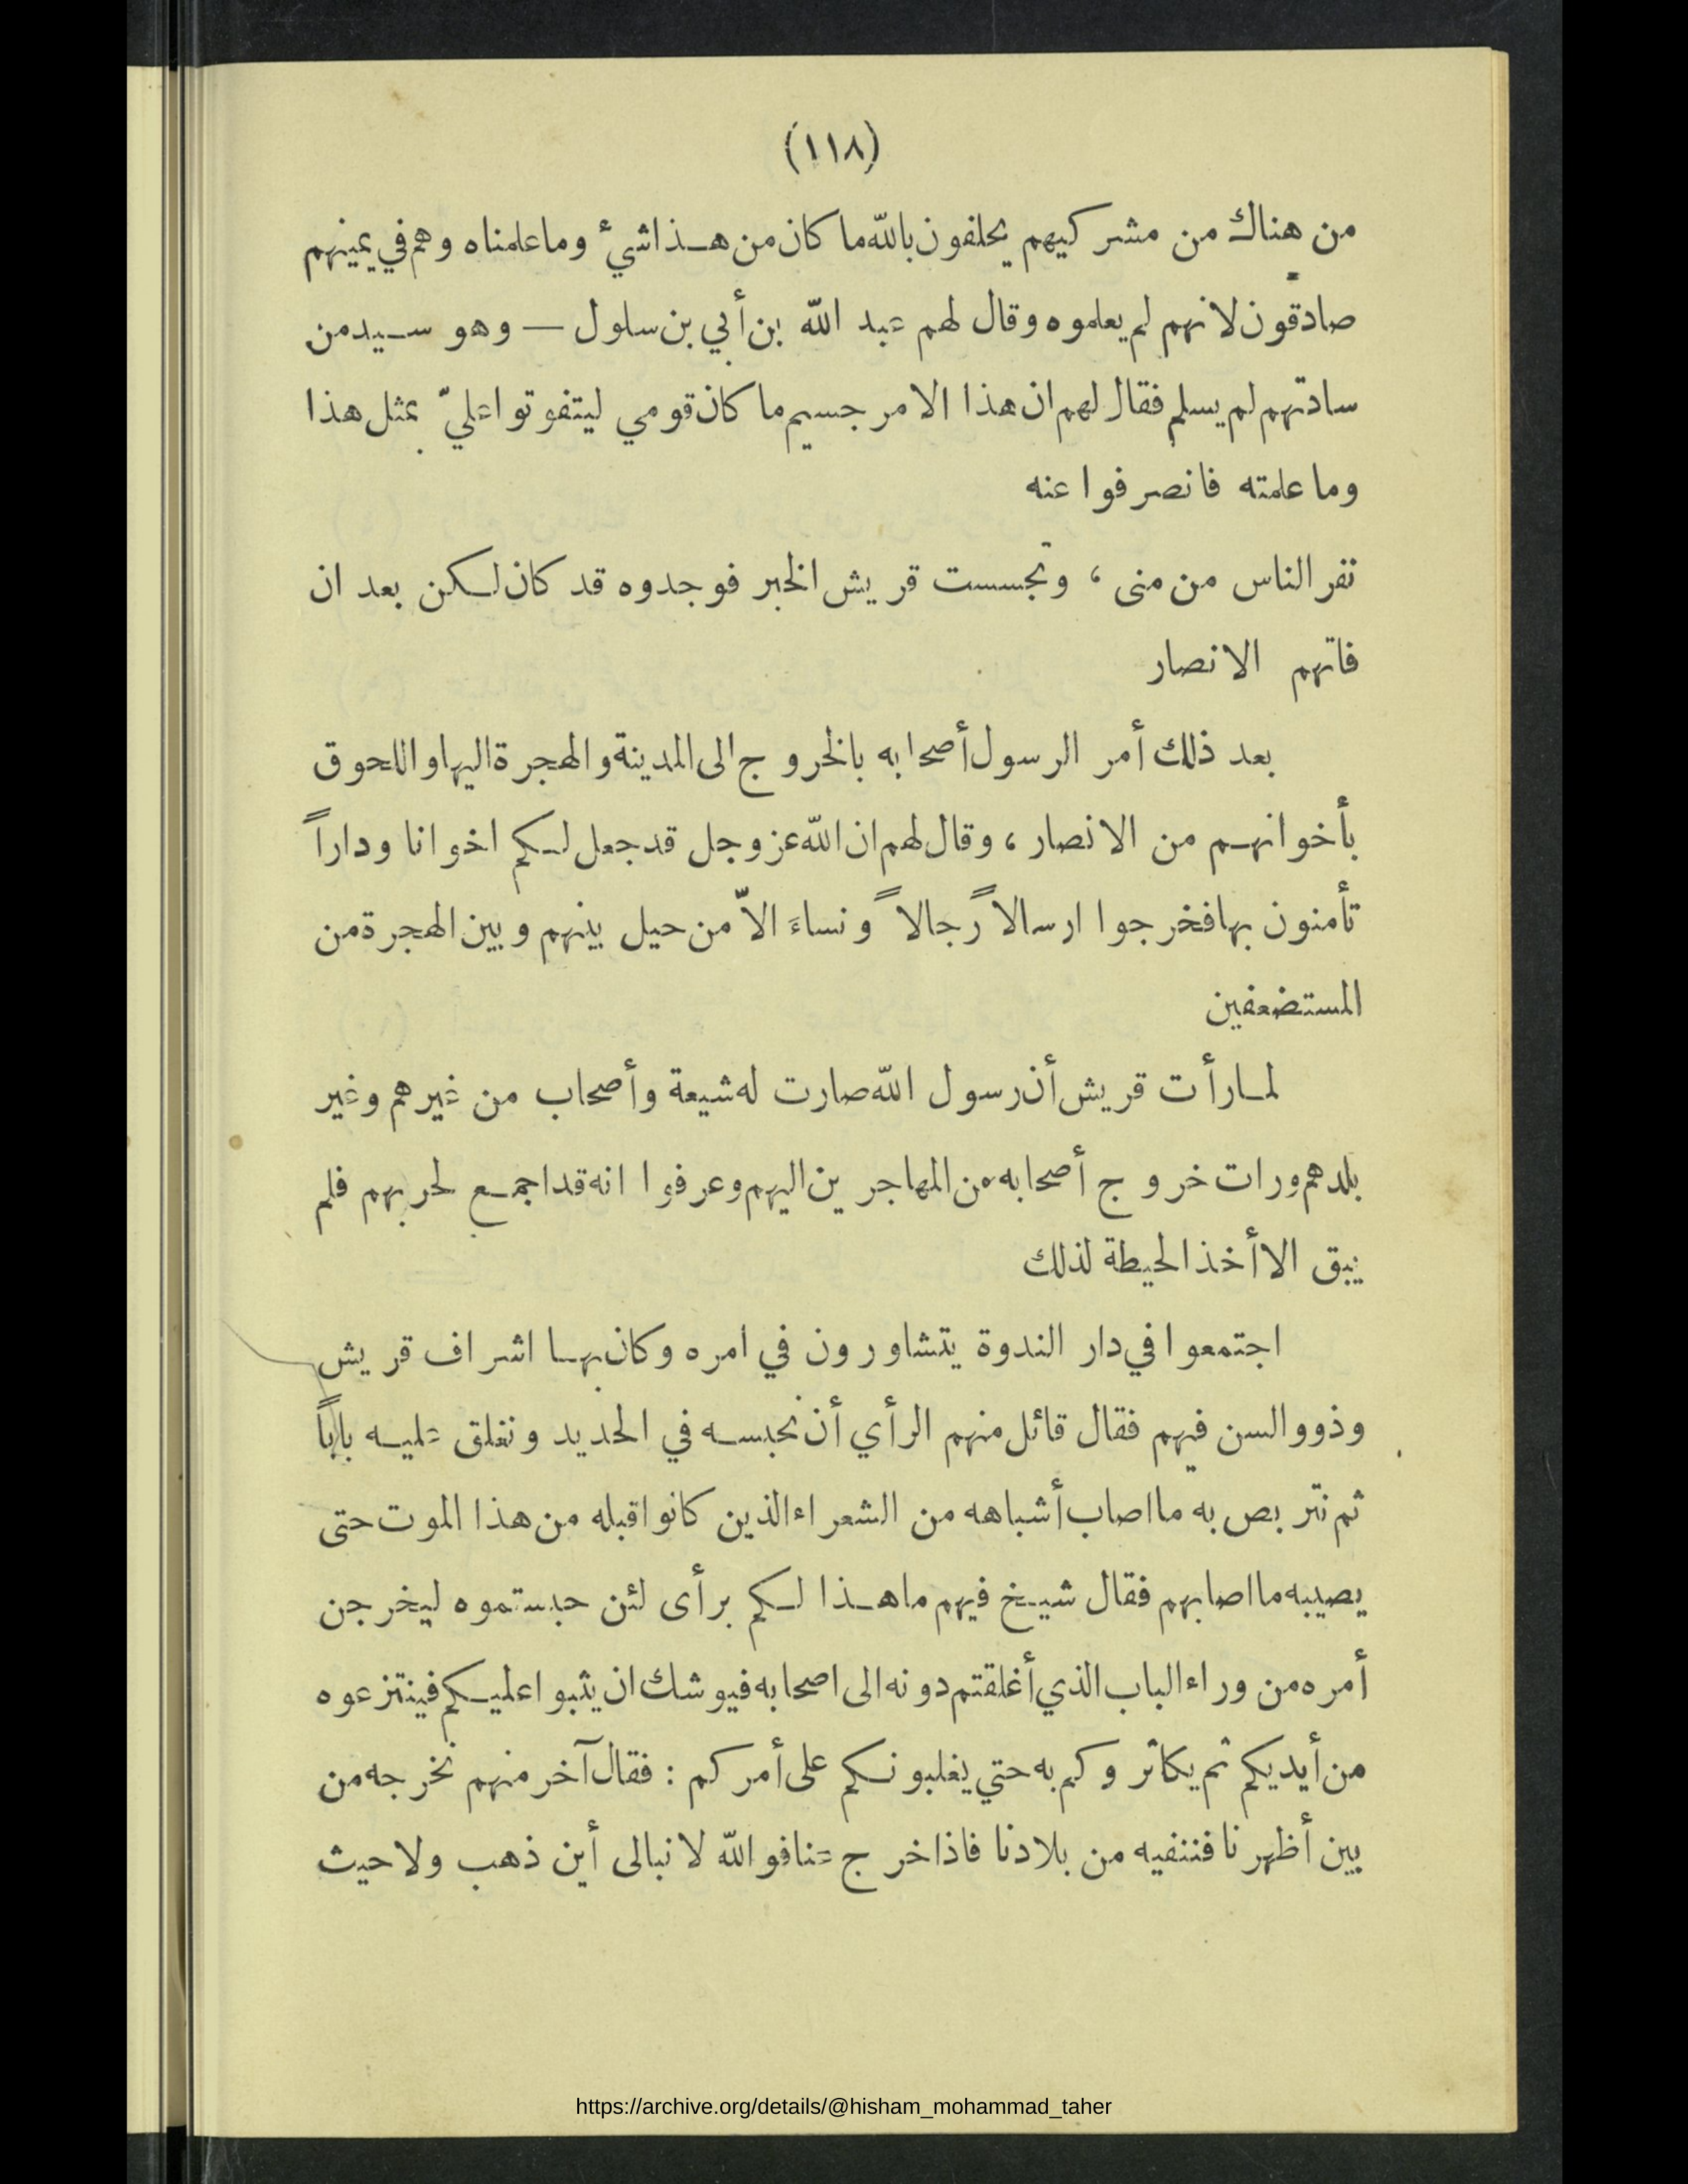 (١١٨)
من هناك من مشركيهم يحلفون بالله ما كان من هـذا شيء وما علمناه وهم في يمينهم
صادقون لانهم لم يعلموه وقال لهم عبد الله بن أبي بن سلول — وهو سـيد من
ساداتهم لم يسلم فقال لهم ان هذا الامر جسيم ما كان قومي ليتفوتوا عليّ بمثل هذا
وما علمته فانصرفوا عنه
نفر الناس من منى ، وتجسست قريش الخبر فوجدوه قد كان لـكن بعد ان
فاتهم الانصار
بعد ذلك أمر الرسول أصحابه بالخروج الى المدينة والهجرة اليها واللحوق
بأخوانهـم من الانصار ، وقال لهم ان الله عز وجل قد جعل لـكم اخوانا وداراً
تأمنون بها فخرجوا ارسالاً رجالاً ونساءَ الاّ من حيل بينهم وبين الهجرة من
المستضعفين
لمـا رأت قريش أن رسول الله صارت له شيعة وأصحاب من غيرهم وغير
بلدهم ورات خروج أصحابه من المهاجرين اليهم وعرفوا انه قد اجمـع لحربهم فلم
يبق الا أخذ الحيطة لذلك
اجتمعوا في دار الندوة يتشاورون في امره وكان بهـا اشراف قريش
وذوو السن فيهم فقال قائل منهم الرأي أن نحبسـه في الحديد ونغلق عليـه باباً
ثم نتربص به ما اصاب أشباهه من الشعراء الذين كانوا قبله من هذا الموت حتى
يصيبه ما اصابهم فقال شيـخ فيهم ما هـذا لـكم برأى لئن حبستموه ليخرجن
أمره من وراء الباب الذي أغلقتم دونه الى اصحابه فيوشك ان يثبوا عليـكم فينتزعوه
من أيديكم ثم يكاثروكم به حتي يغلبونـكم على أمركم : فقال آخر منهم نخرجه من
بين أظهرنا فننفيه من بلادنا فاذا خرج عنا فوالله لا نبالى أين ذهب ولا حيث
https://archive.org/details/@hisham_mohammad_taher